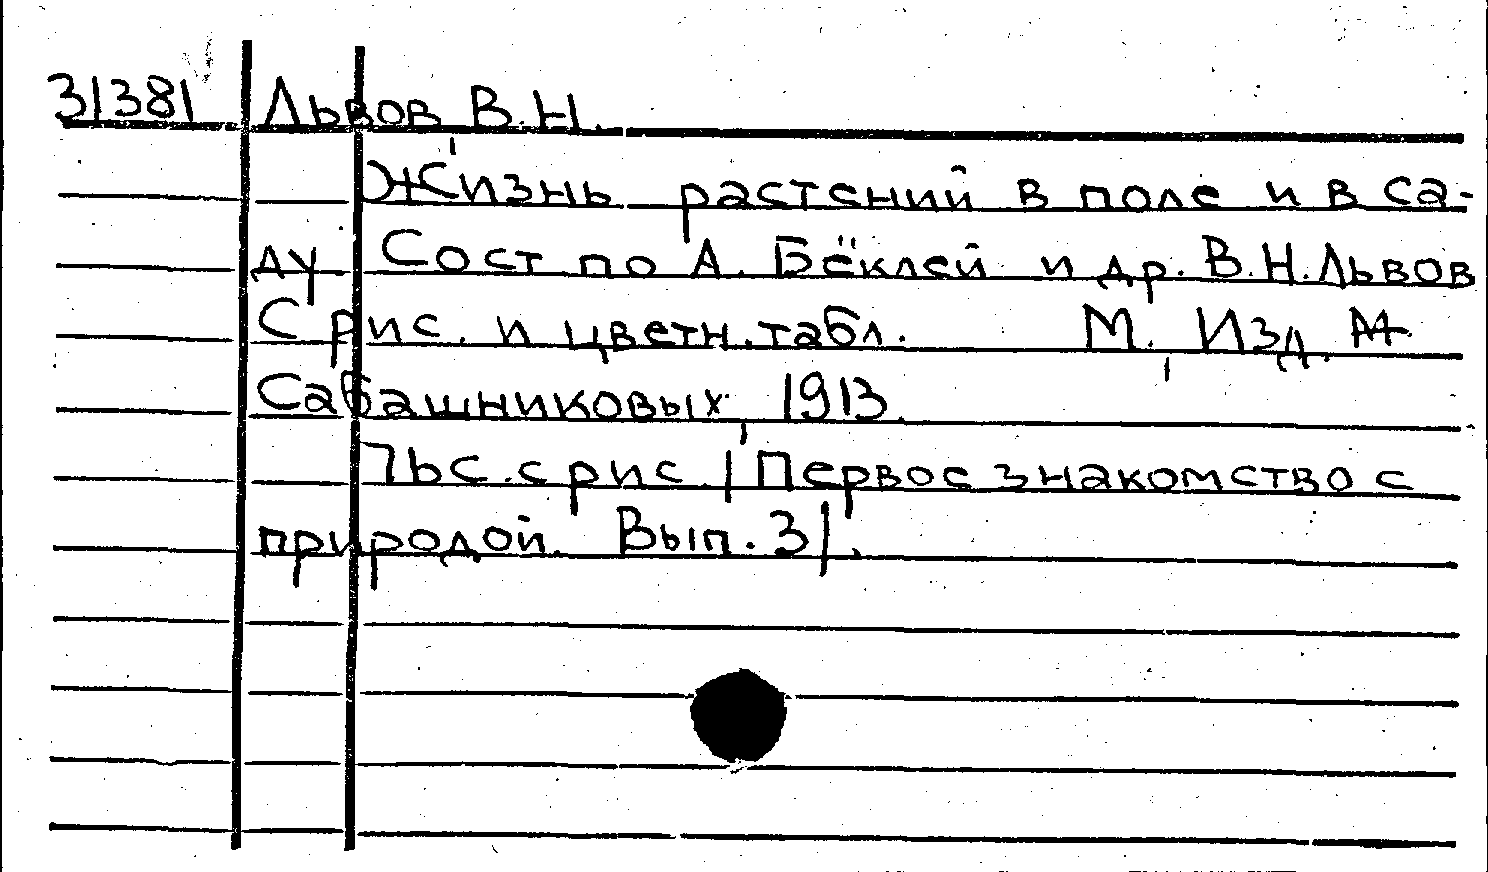 31381 Львов, В.Н.
Жизнь растений в поле и в са-
ду Сост по А. Бёклей и др. В.Н.Львов
С рис. и цветн.табл. М., Изд.
Сабашниковых, 1913.
76с.с рис. /Первое знакомство с
природой. Вып.3/.